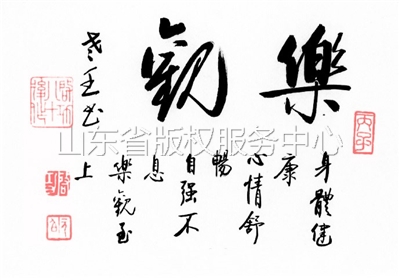 樂觀
身體健
康
心情舒
暢
自强不
息
樂觀至
上
老王书
山东省版权服务中心